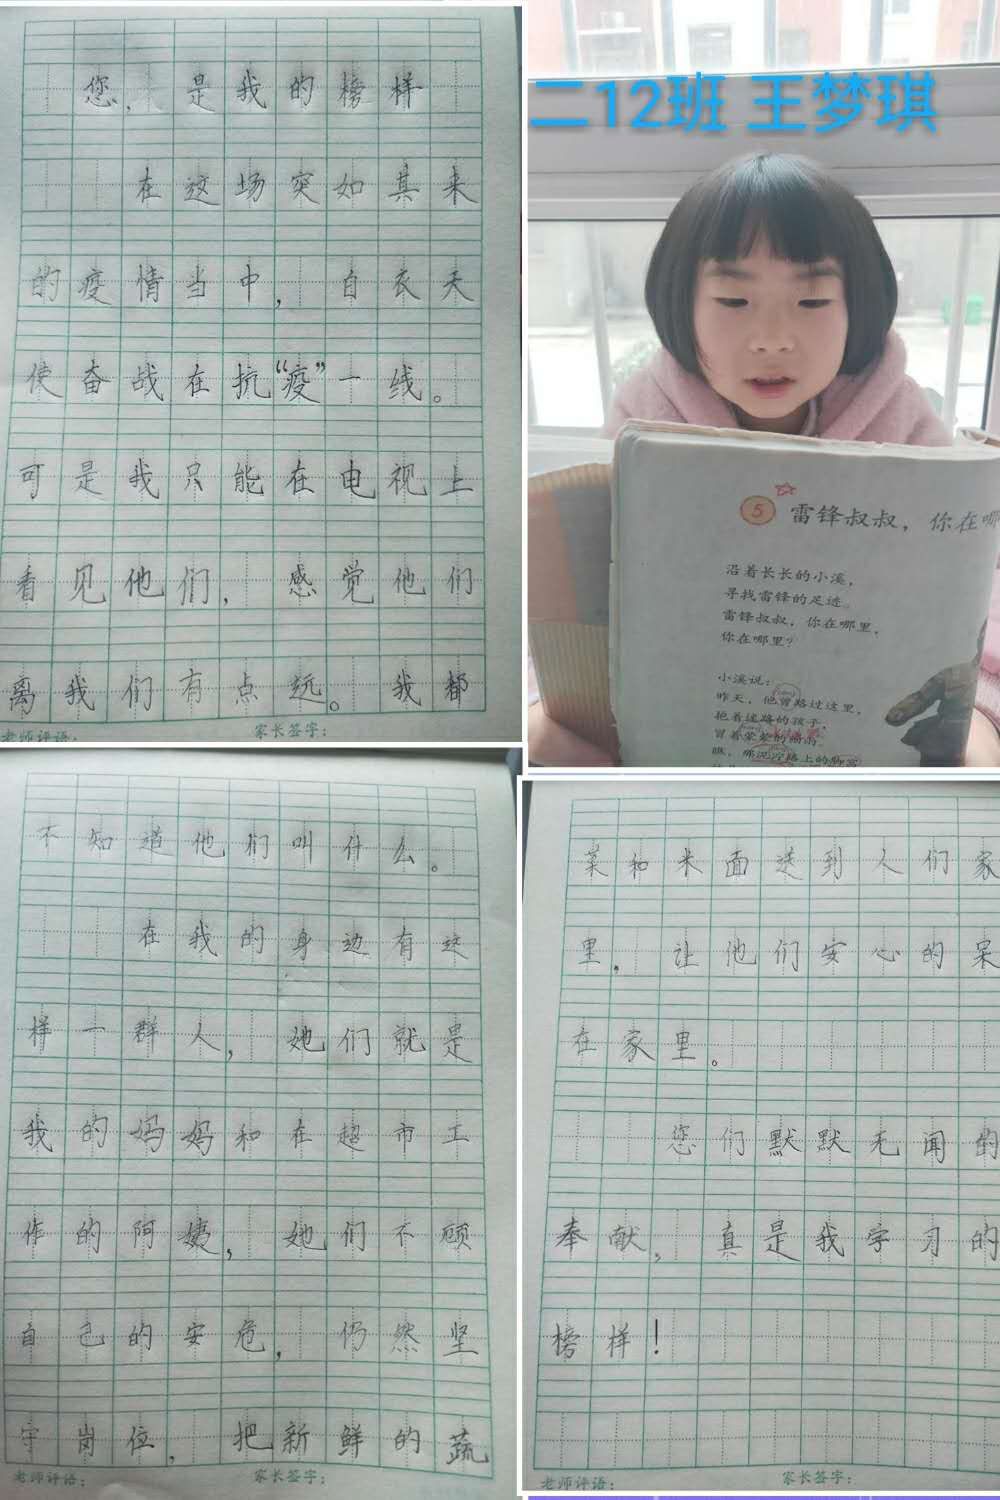 您，是我的榜样
在这场突如其来
的疫情当中，自衣天
使奋战在抗“疫”一线。
可是我只能在电视上
看见他们，感觉他们
离我们有点远。我都
老师评语：
家长签字：
二12班 王梦琪
5 雷锋叔叔，你在哪
沿着长长的小溪，
寻找雷锋的足迹。
雷锋叔叔，你在哪里，
你在哪里？
小溪说：
昨天，他曾路过这里，
抱着迷路的孩子，
冒着蒙蒙的细雨。
瞧，那泥泞路上的脚窝
不知道他们叫什么。
在我的身边有这
样一群人，她们就是
我的妈妈和在超市工
作的阿姨，她们不顾
自己的安危，仍然坚
守岗位，把新鲜的蔬
老师评语：
家长签字：
菜和米面送到人们家
里。让他们安心的呆
在家里。
您们默默无闻的
奉献，真是我学习的
榜样！
老师评语：
家长签字：